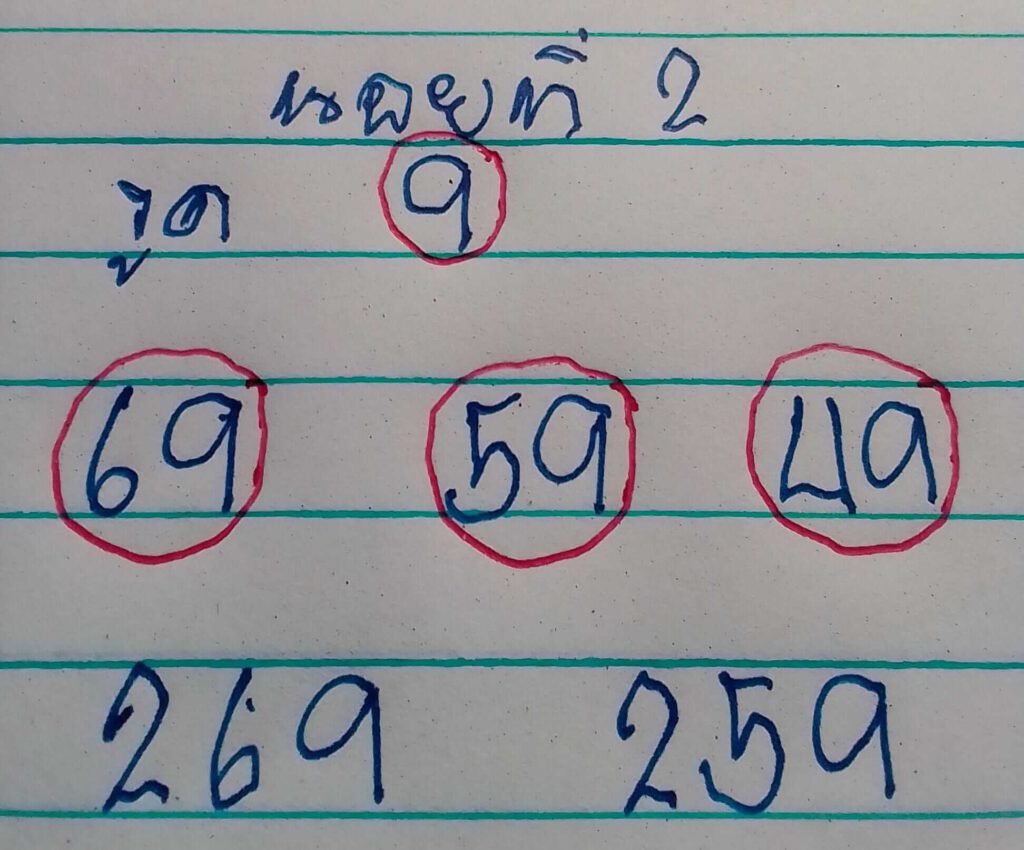 ที่ 2
รูด 9
69 59 49
269 259